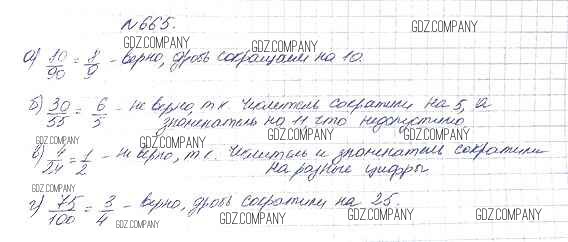 №665.
GDZ.COMPANY
GDZ.COMPANY
GDZ.COMPANY
а) 10/90 = 1/9 - верно, дробь сокращаем на 10.
б) 30/55 = 6/5 - не верно, т.к. числитель сократили на 5, а
знаменатель на 11 что недопустимо
GDZ.COMPANY
GDZ.COMPANY
GDZ.COMPANY
GDZ.COMPANY
в) 4/24 = 1/2 - не верно, т.к. числитель и знаменатель сократили
на разные цифры
GDZ.COMPANY
г) 75/100 = 3/4 - верно, дробь сократили на 25.
GDZ.COMPANY
GDZ.COMPANY
GDZ.COMPANY
GDZ.COMPANY